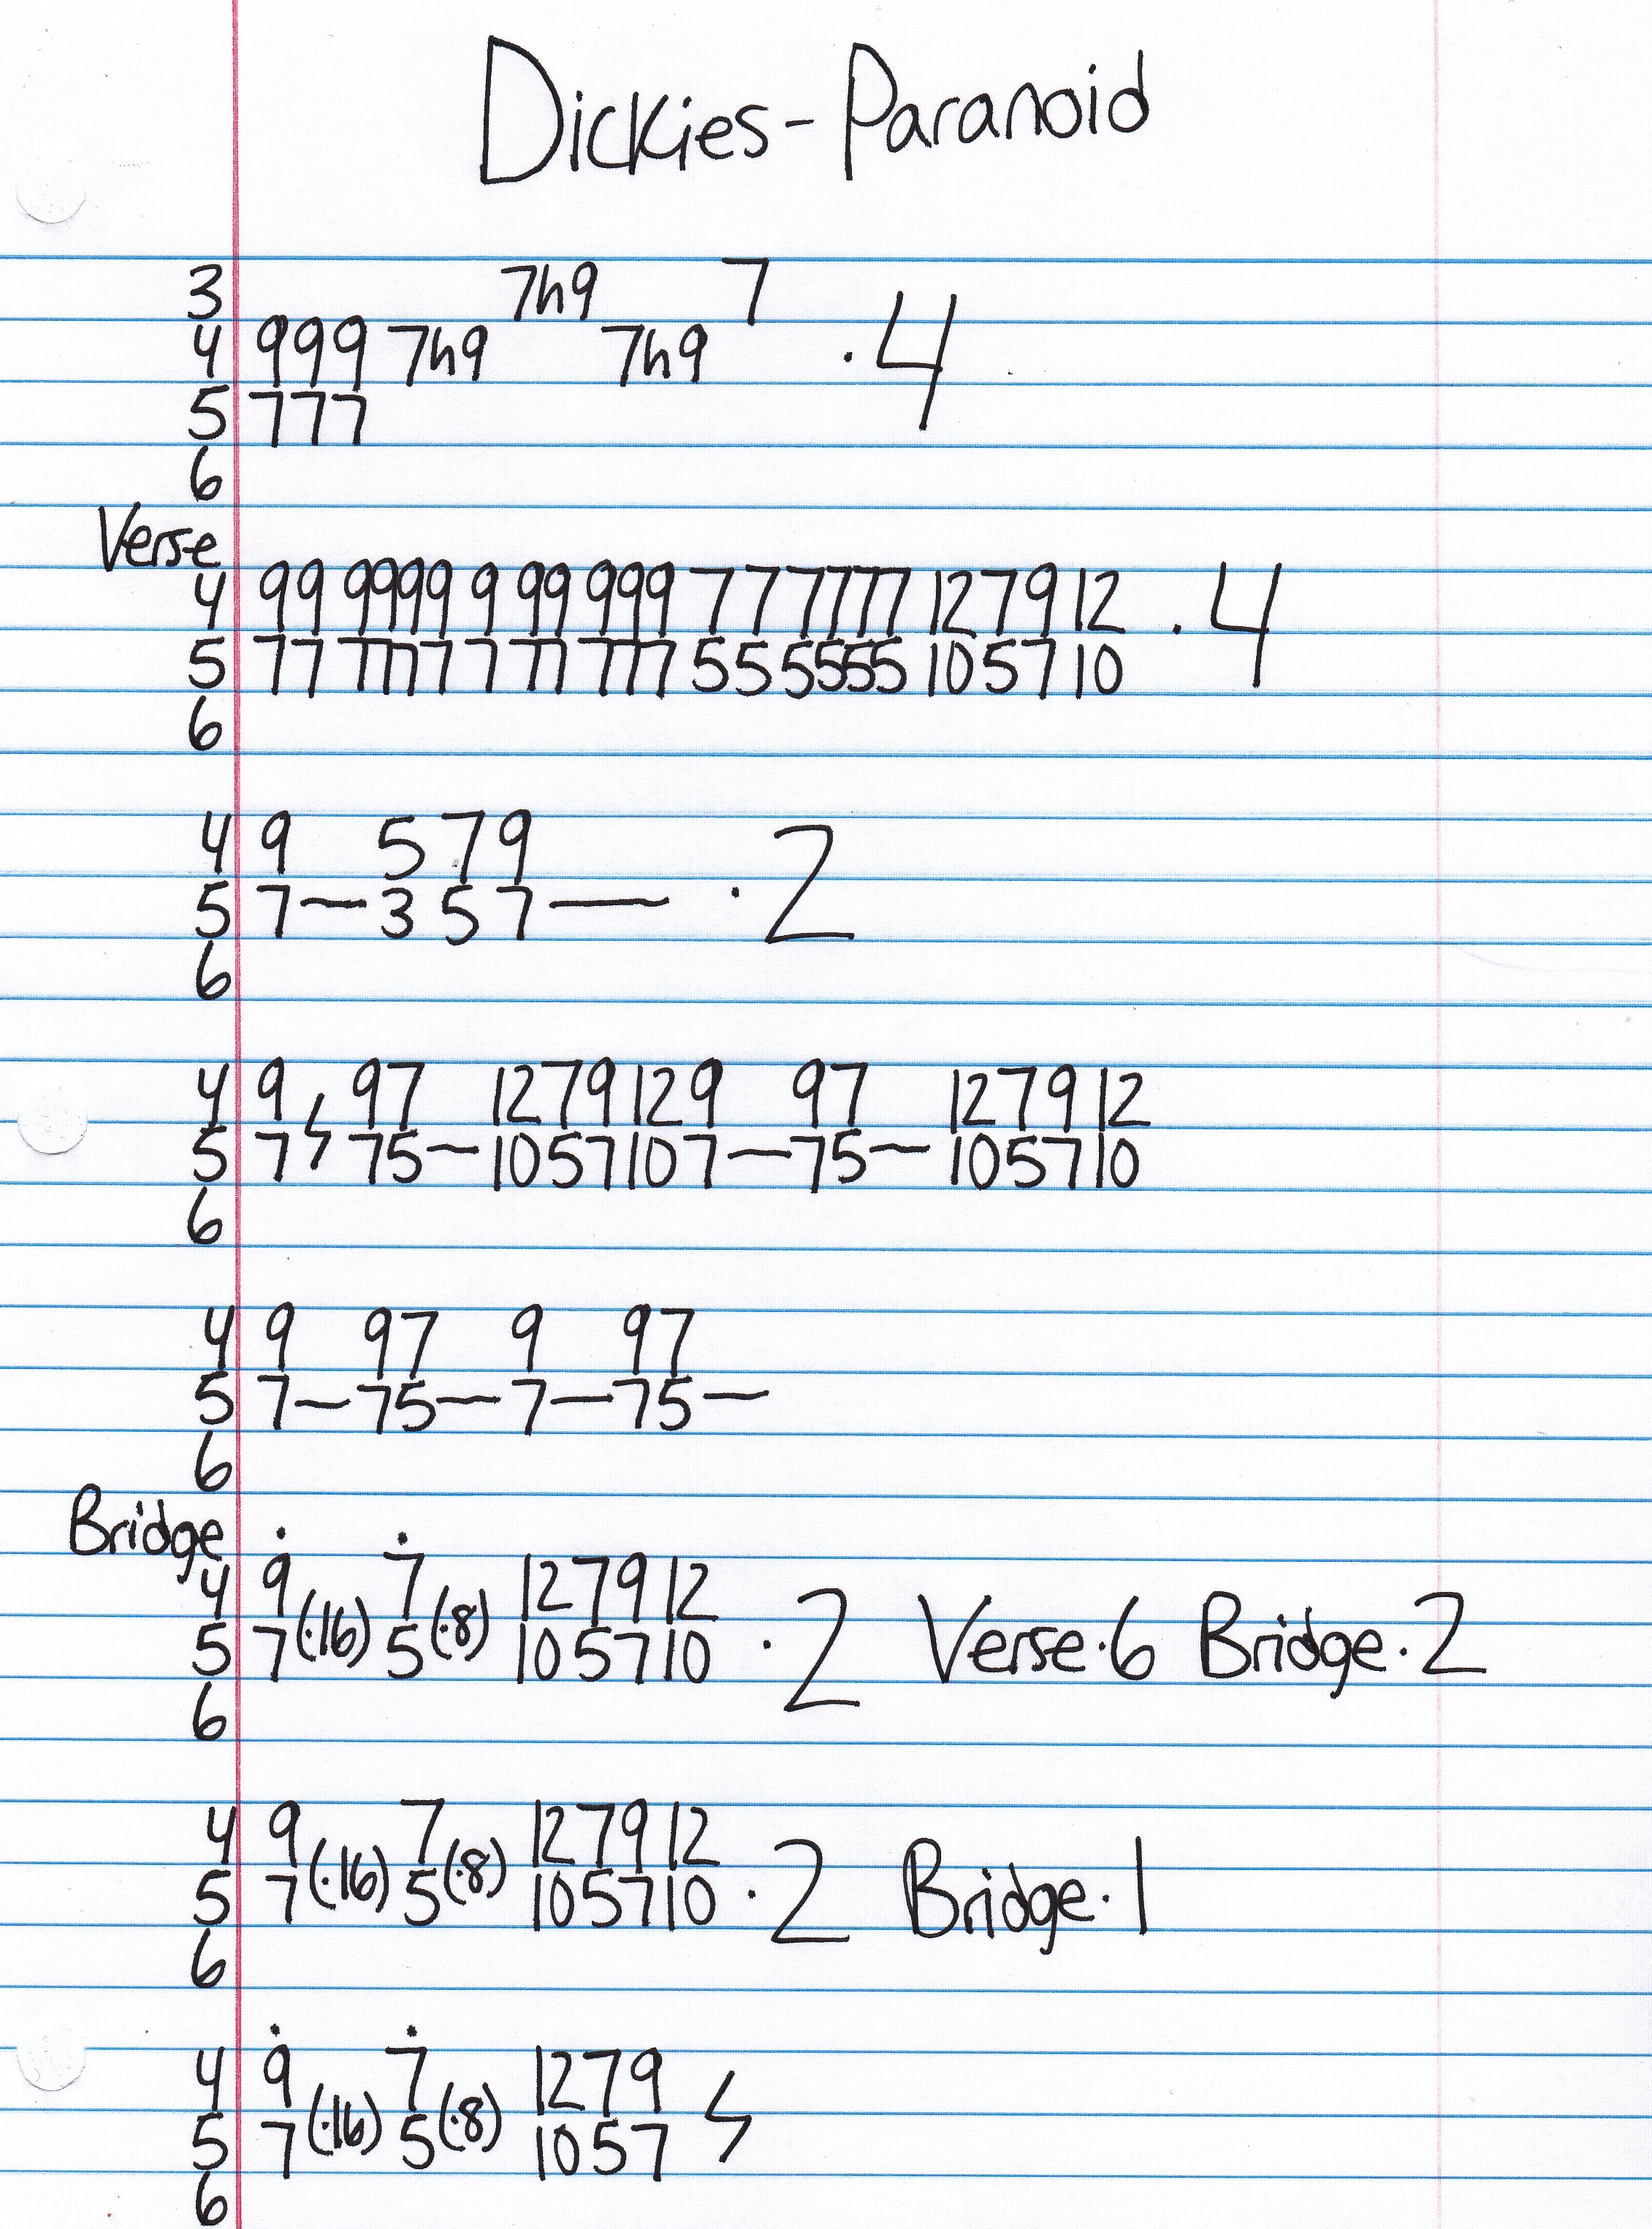 Dickies - Paranoid
3 7h9 7
4 999 7h9 7h9 · 4
5 777
6
Verse
4 99 9999 9 99 999 7 7 7777 12 7 9 12 · 4
5 77 7777 7 77 777 5 5 5555 10 5 7 10
6
4 9 5 7 9
5 7 — 3 5 7 — · 2
6
4 9 97 12 7 9 12 9 97 12 7 9 12
5 7 75 — 10 5 7 10 7 — 75 — 10 5 7 10
6
4 9 97 9 97
5 7 — 75 — 7 — 75 —
6
Bridge
4 9 (·16) 7 (·8) 12 7 9 12
5 7 5 10 5 7 10 · 2 Verse · 6 Bridge · 2
6
4 9 (·16) 7 (·8) 12 7 9 12
5 7 5 10 5 7 10 · 2 Bridge · 1
6
4 9 (·16) 7 (·8) 12 7 9
5 7 5 10 5 7
6